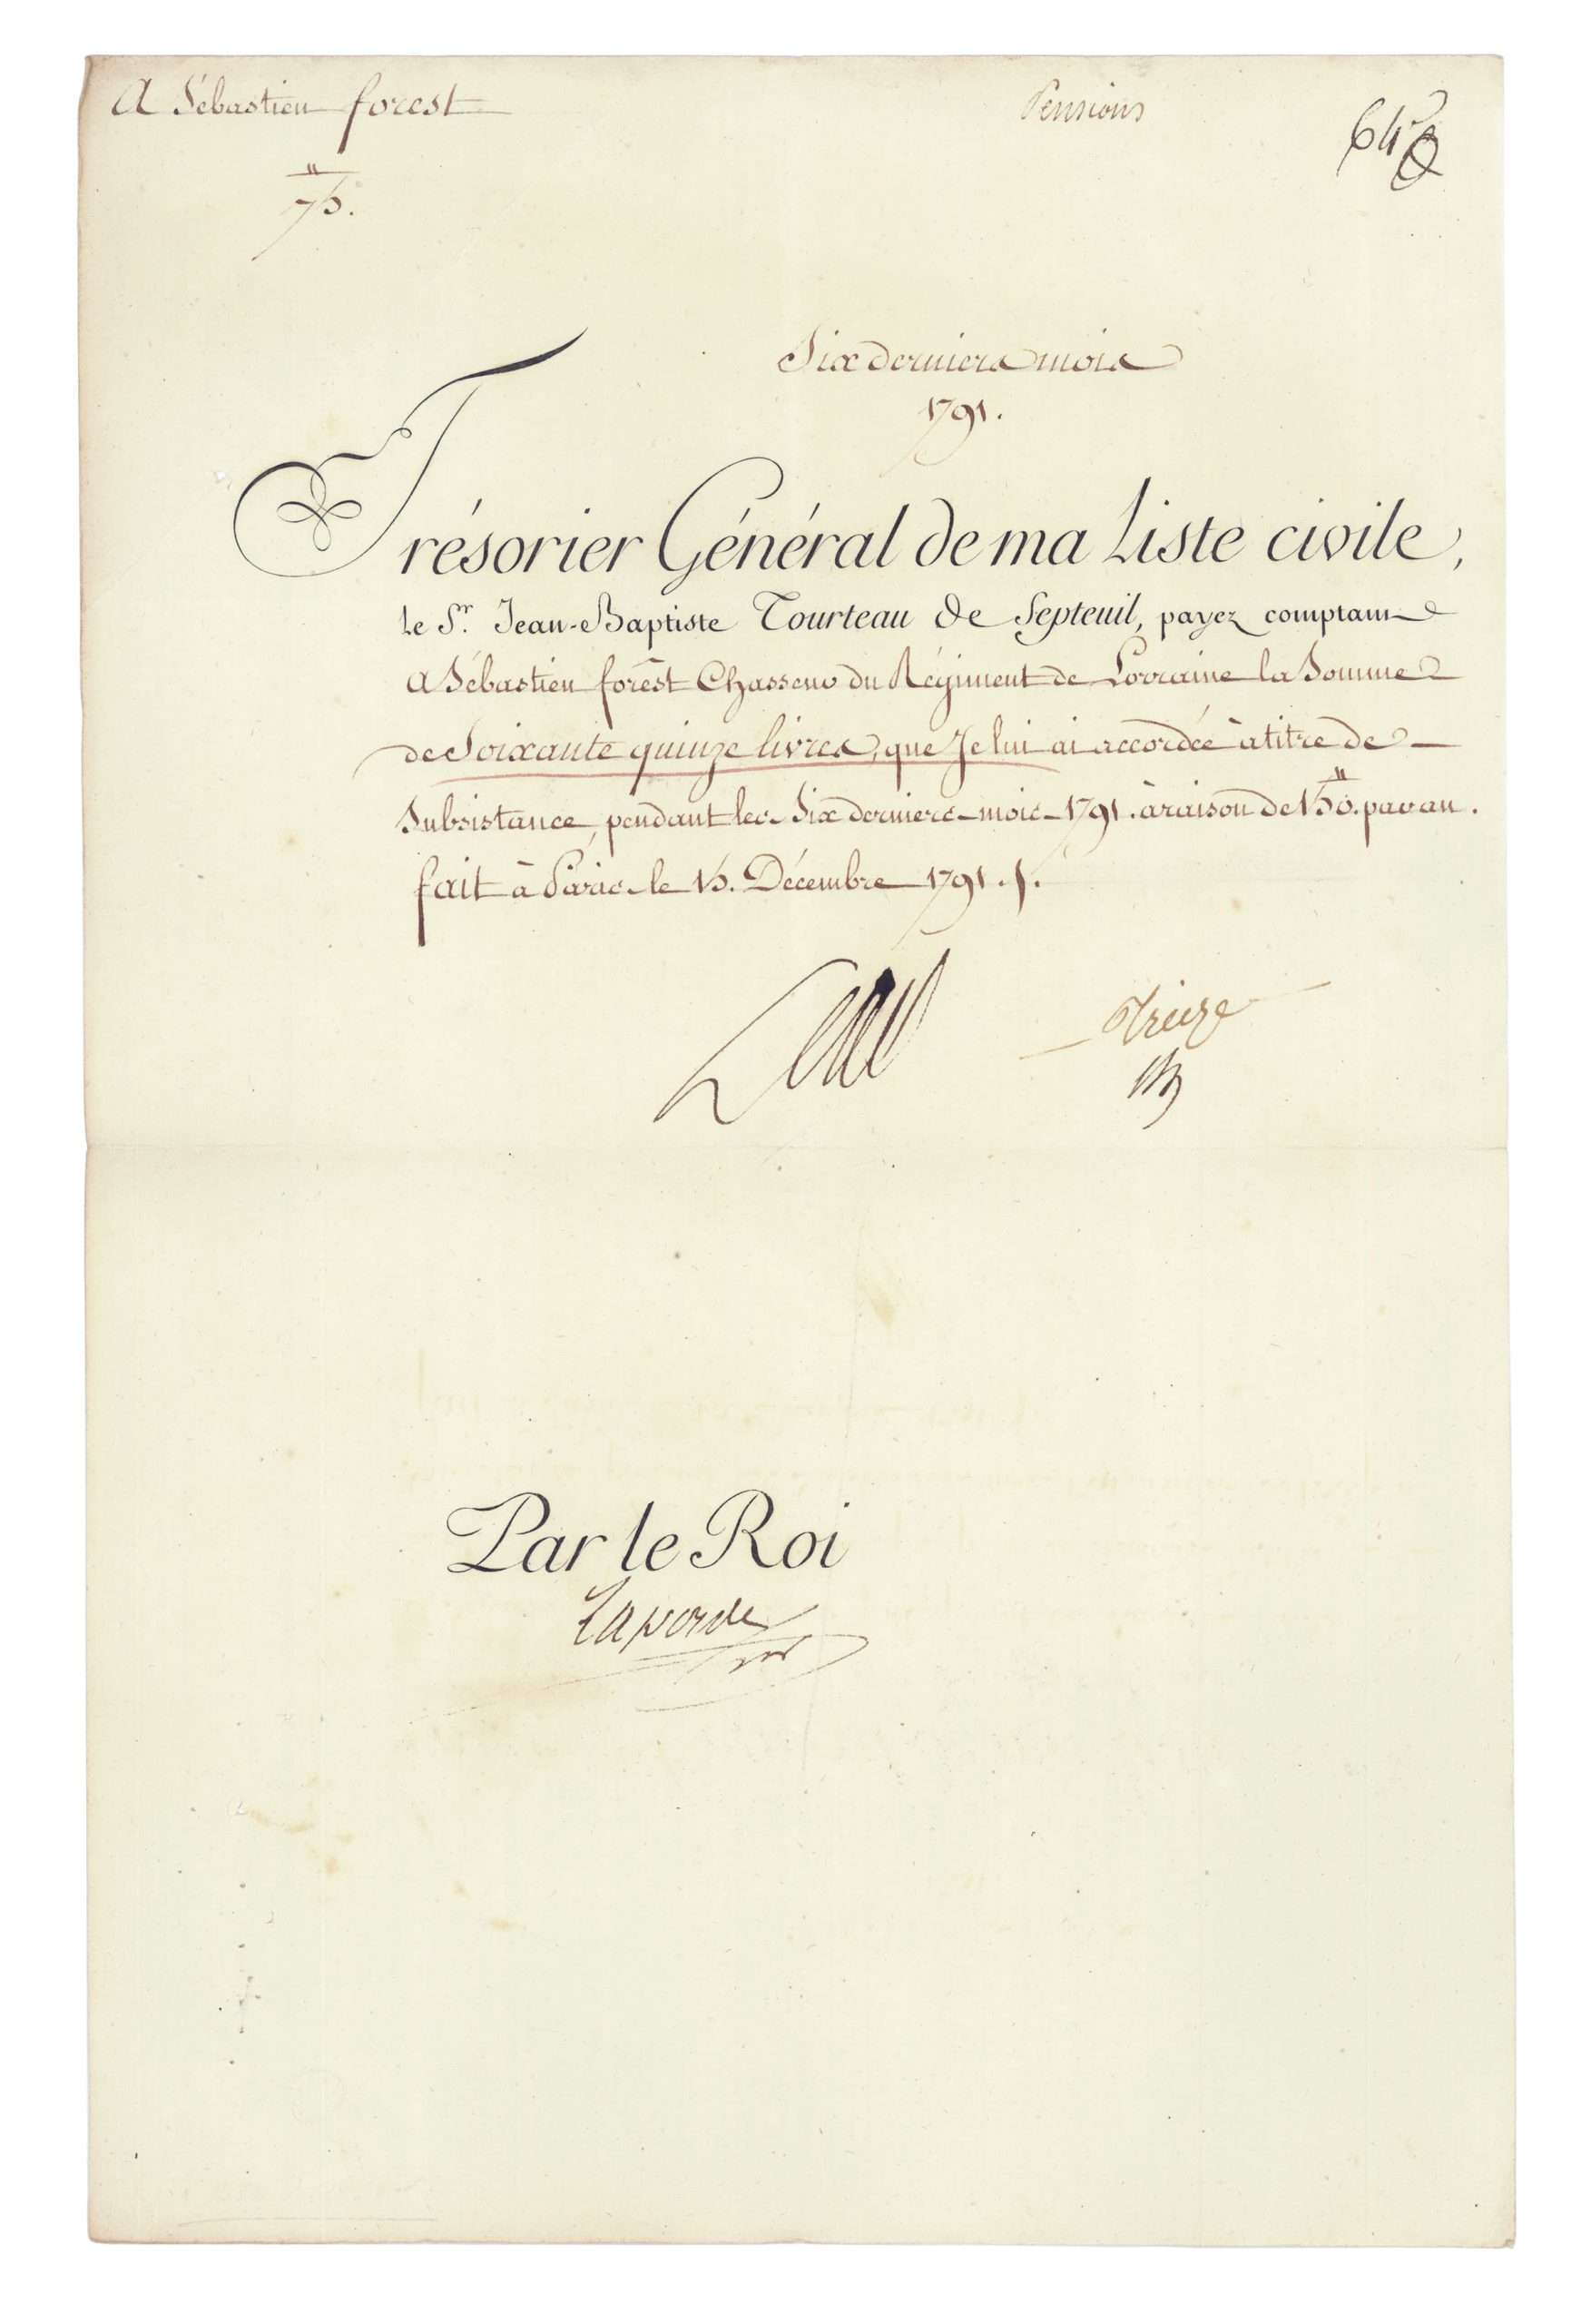 A Sébastien forest
Pensions
75.
Six derniers mois
1791.
Trésorier Général de ma Liste civile,
le Sr. Jean-Baptiste Tourteau de Septeuil, payez comptant
A Sébastien forest Chasseur du Régiment de Lorraine la Somme
de Soixante quinze livres, que Je lui ai accordée à titre de
Subsistance, pendant les Six derniers mois 1791. à raison de 150. par an.
fait à Paris le 15. Décembre 1791.
Par le Roi
Laporte